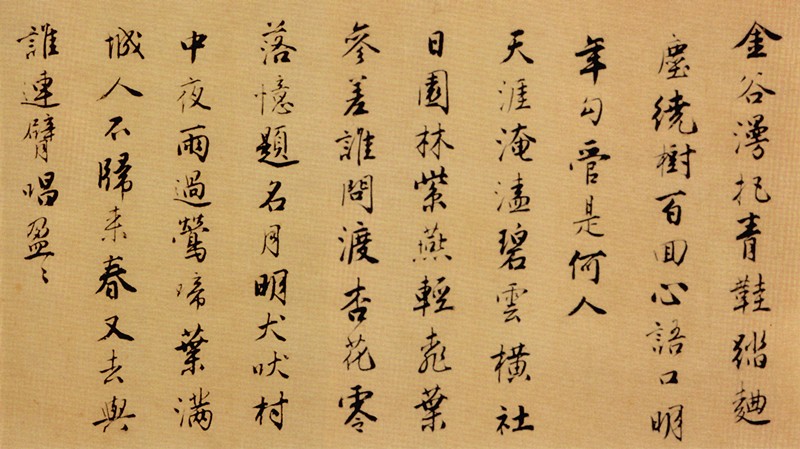 金谷漫把青鞋踏麯
塵繞樹百回心語口明
年勾管是何人
天涯淹溘碧雲橫社
日園林紫燕輕桃葉
參差誰問渡杏花零
落憶題名月明犬吠村
中夜雨過鶯啼葉滿
城人不歸來春又去與
誰連臂唱盈々